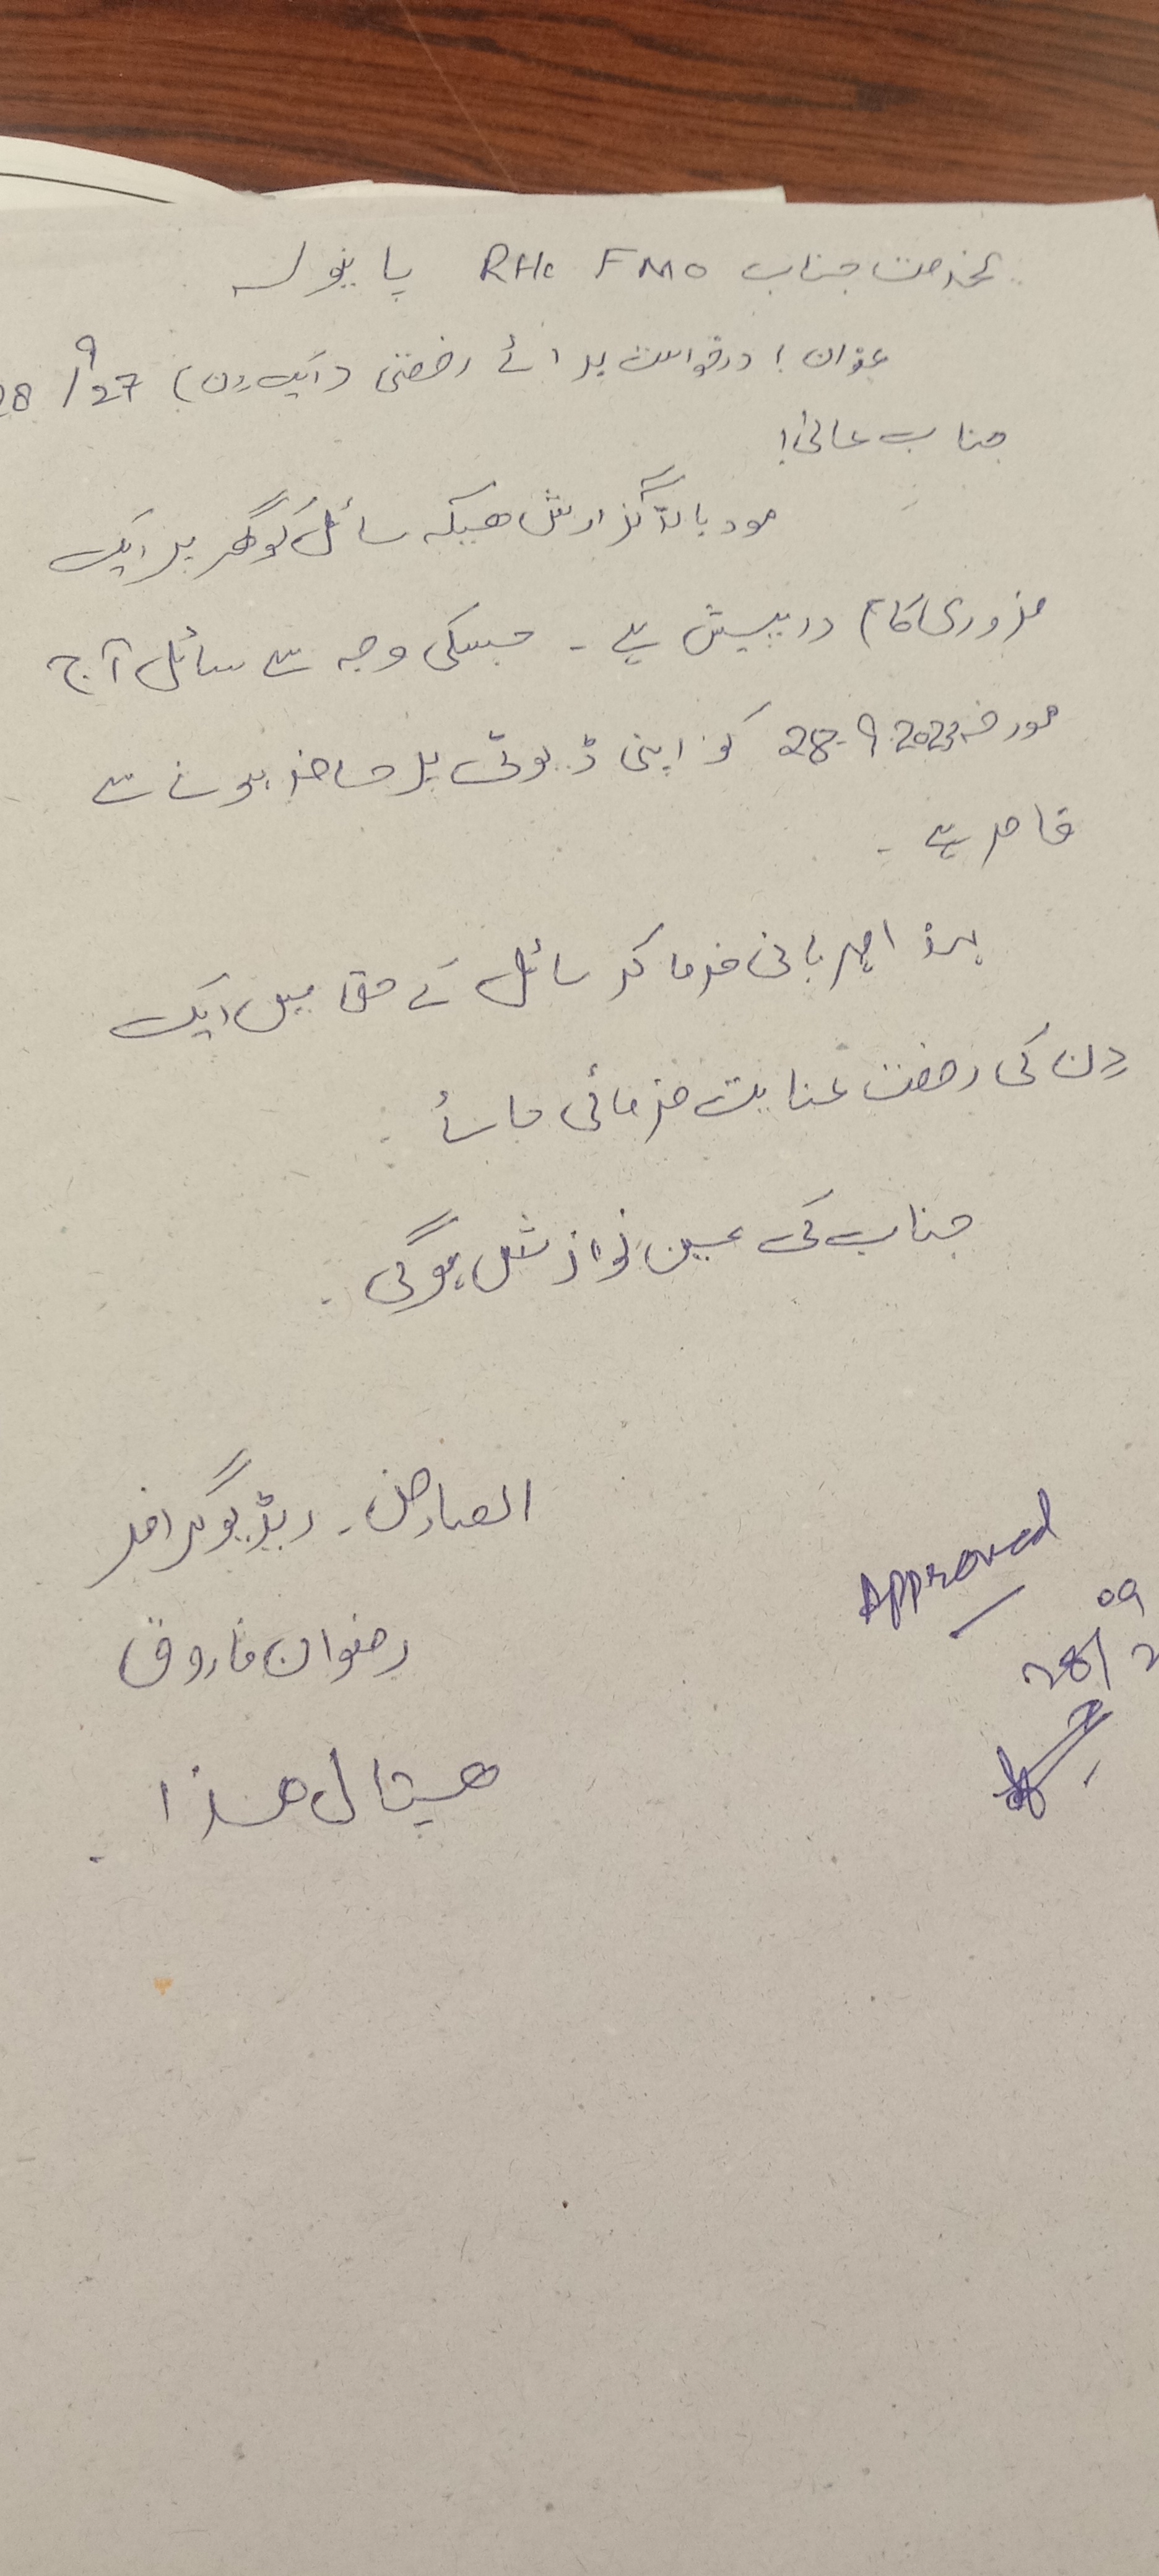 بخدمت جناب FMO RHC پانپولہ
عنوان ! درخواست برائے رخصتی (ایک دن) 27/9 28
جناب عالی!
مودبانہ گزارش ھیکہ سائل کو گھر پر ایک
ضروری کام درپیش ہے ۔ جسکی وجہ سے سائل آج
مورخہ 28-9-2023 کو اپنی ڈیوٹی پر حاضر ہونے سے
قاصر ہے ۔
لہذا مہربانی فرما کر سائل کے حق میں ایک
دِن کی رخصت عنایت فرمائی جائے ۔
جناب کی عین نوازش ہوگی ۔
العارض ۔ ریڈیوگرافر
رضوان فاروق
ھسپتال ھذا ۔
Approved
28/09